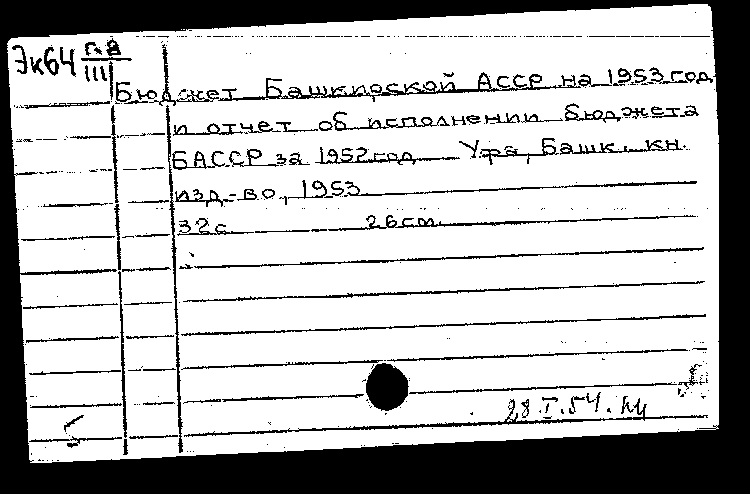 Эк64 Г-8
III
Бюджет Башкирской АССР на 1953 год
и отчет об исполнении бюджета
БАССР за 1952 год Уфа, Башк. кн.
изд-во, 1953.
32 с. 26 см.
28.I.54.